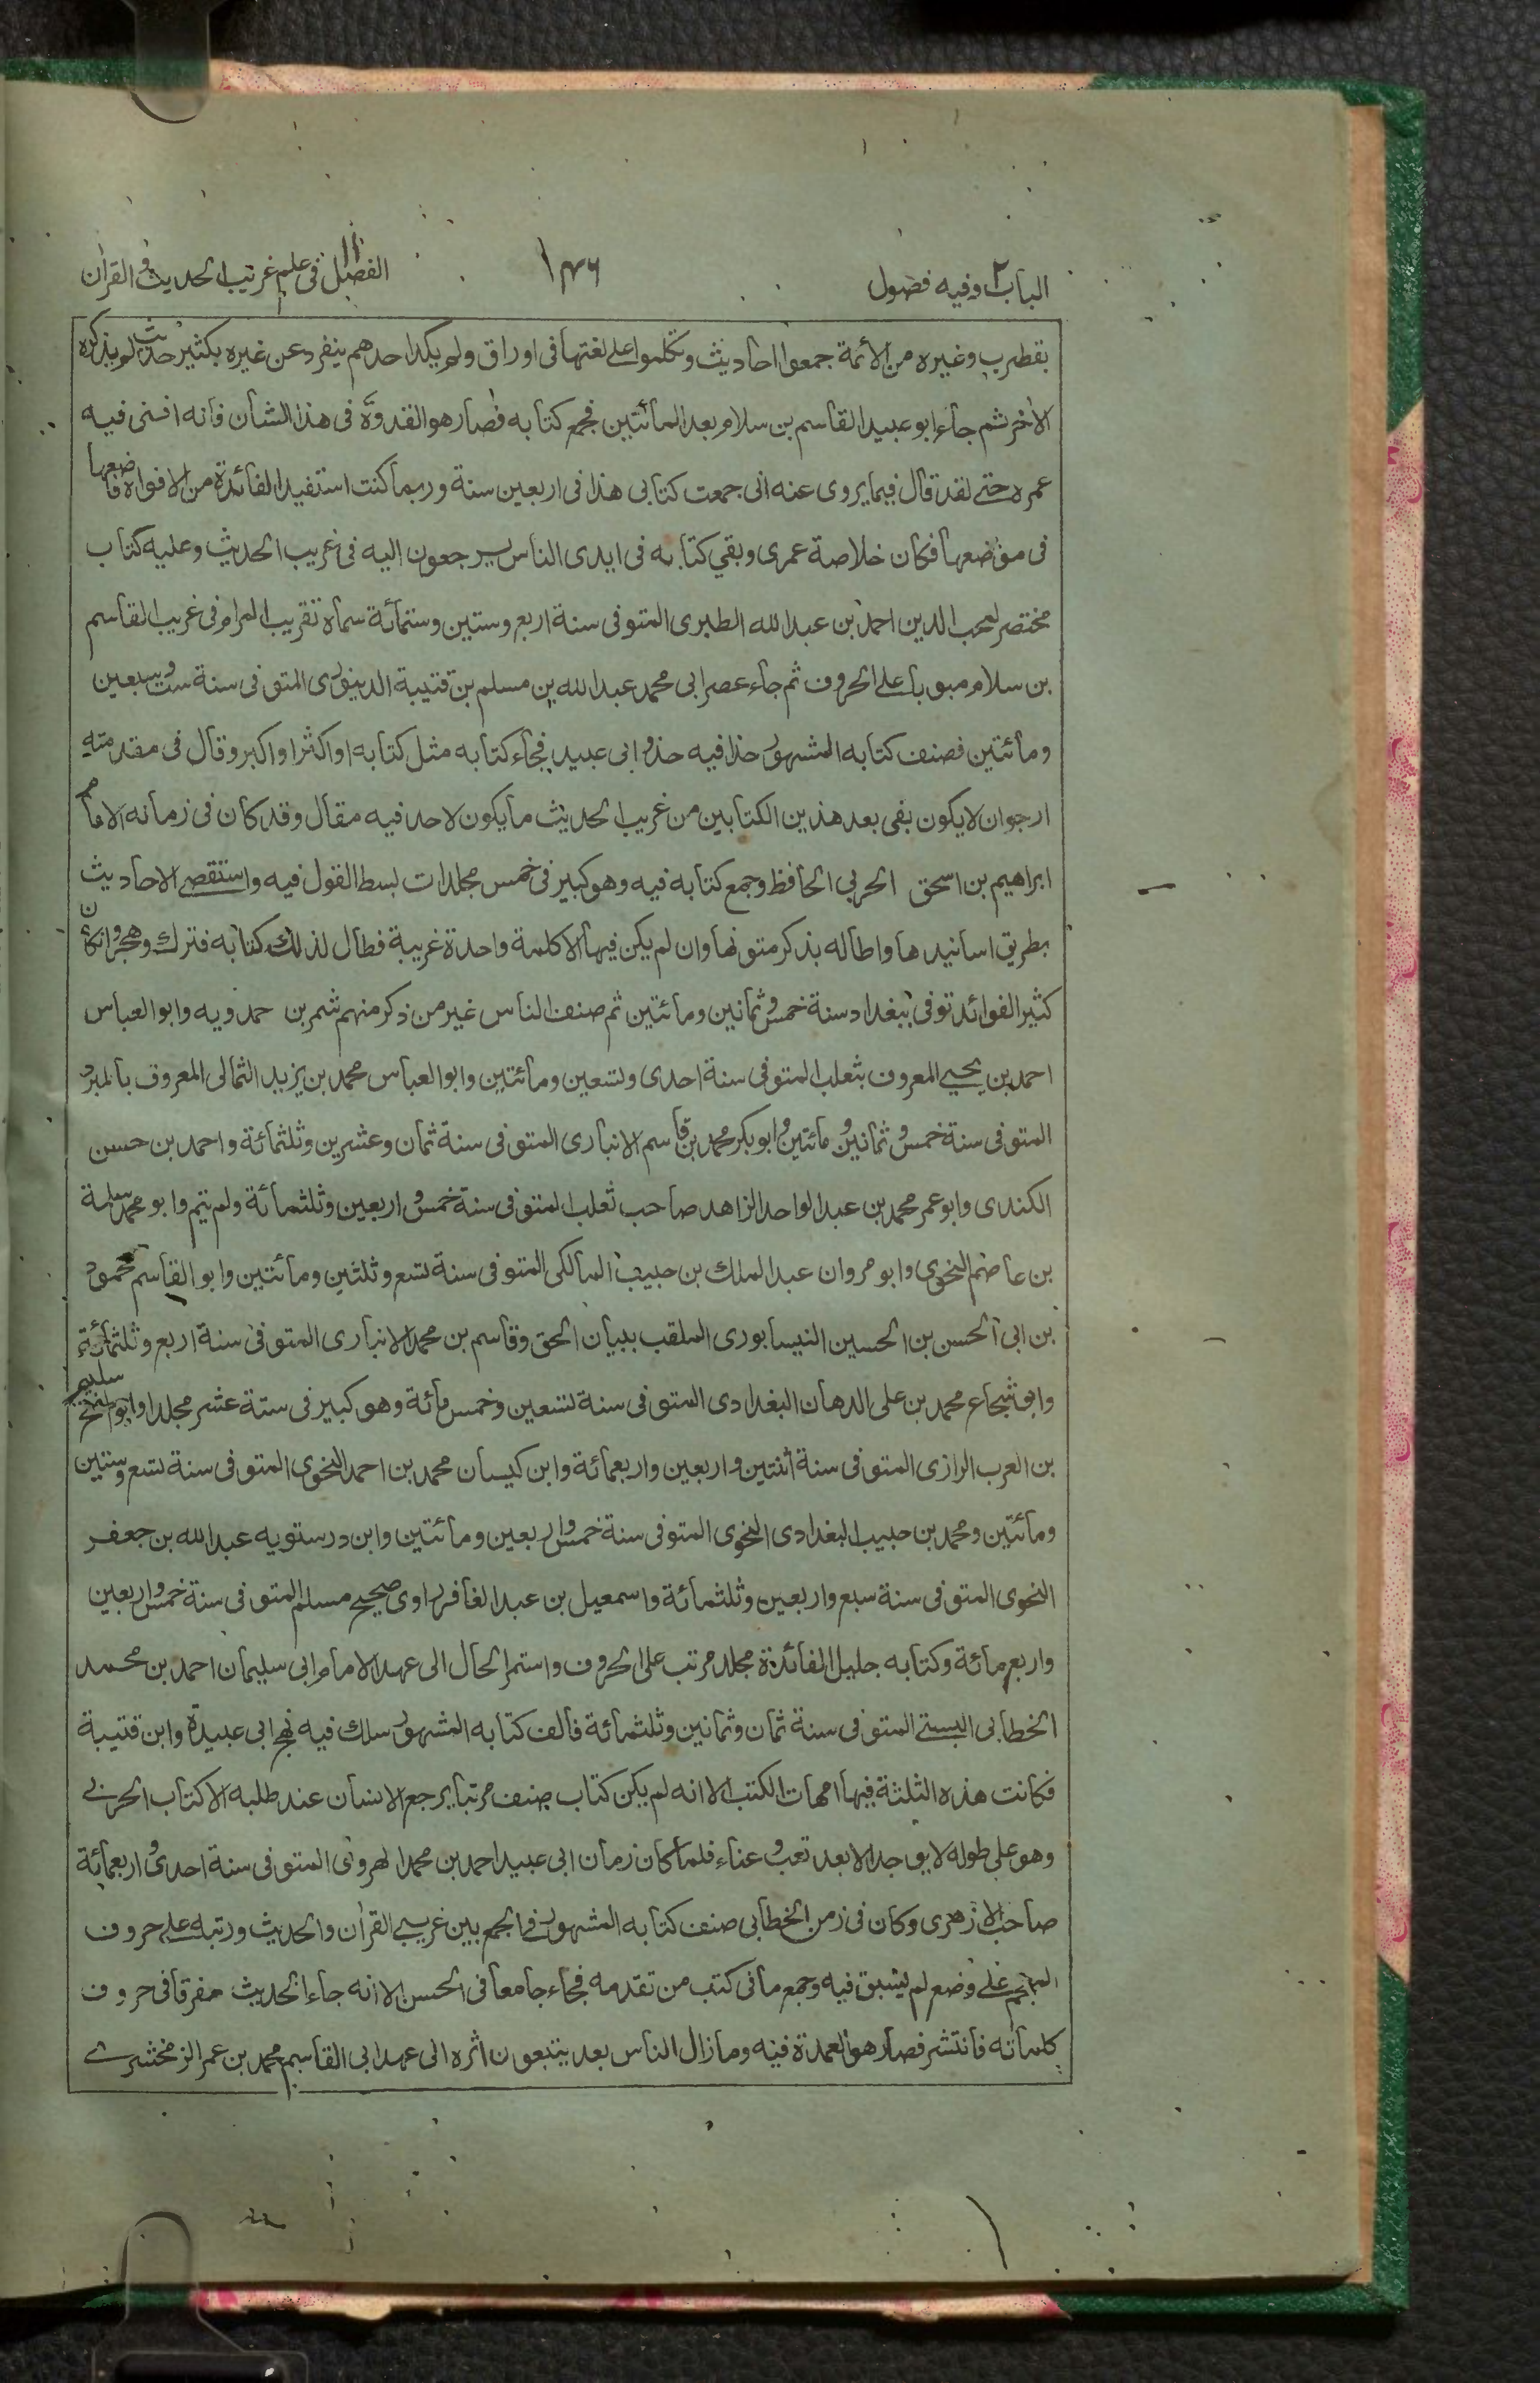 الباب٢ وفيه فصول
١٣٦
الفصل١١ فى علم غريب الحديث و القران
بقطرب وغيره من الأئمة جمعوا احاديث وتكلموا على لغتها فى اوراق ولم يكد احدهم ينفرد عن غيره بكثير حديث لم يذكره
الأخر ثم جاء ابو عبيد القاسم بن سلام بعد المأئتين فجمع كتابه فصار هو القدوة فى هذا الشان فانه افنى فيه
عمره حتى لقد قال فيما يروى عنه انى جمعت كتابى هذا فى اربعين سنة وربما كنت استفيد الفائدة من الافواه فاضعها
فى موضعها فكان خلاصة عمرى وبقي كتابه فى ايدى الناس يرجعون اليه فى غريب الحديث وعليه كتاب
مختصر لمحب الدين احمد بن عبد الله الطبرى المتوفى سنة اربع وستين وستمائة سماه تقريب المرام فى غريب القاسم
بن سلام مبوبا على الحروف ثم جاء عصر ابى محمد عبد الله بن مسلم بن قتيبة الدينورى المتوفى سنة ست وسبعين
ومائتين فصنف كتابه المشهور حذا فيه حذو ابى عبيد فجاء كتابه مثل كتابه او اكثر او اكبر وقال فى مقدمته
ارجوان لايكون بقى بعد هذين الكتابين من غريب الحديث مايكون لاحد فيه مقال وقد كان فى زمانه الامام
ابراهيم بن اسحق الحربى الحافظ وجمع كتابه فيه وهو كبير فى خمس مجلدات بسط القول فيه واستقصى الاحاديث
بطريق اسانيدها واطاله بذكر متونها وان لم يكن فيها الاكلمة واحدة غريبة فطال لذلك كتابه فترك وهجر وانكان
كثير الفوائد توفى ببغداد سنة خمس وثمانين ومائتين ثم صنف الناس غير من ذكر منهم شمر بن حمدويه وابو العباس
احمد بن يحيى المعروف بثعلب المتوفى سنة احدى وتسعين ومائتين وابو العباس محمد بن يزيد الثمالى المعروف بالمبرد
المتوفى سنة خمس وثمانين و مائتين وابو بكر محمد بن قاسم الانبارى المتوفى سنة ثمان وعشرين وثلثمائة واحمد بن حسن
الكندى وابو عمر محمد بن عبد الواحد الزاهد صاحب ثعلب المتوفى سنة خمس واربعين وثلثمائة ولم يتم وابو محمد سلمة
بن عاصم النحوى وابو مروان عبد الملك بن حبيب المالكى المتوفى سنة تسع وثلثين ومائتين وابو القاسم محمود
بن ابى الحسن بن الحسين النيسابورى الملقب ببيان الحق وقاسم بن محمد الانبارى المتوفى سنة اربع وثلثمائة
وابو شجاع محمد بن على الدهان البغدادى المتوفى سنة تسعين وخمس مائة وهو كبير فى ستة عشر مجلدا وابو الفتح سليم
بن العرب الرازى المتوفى سنة اثنتين واربعين واربعمائة وابن كيسان محمد بن احمد النحوى المتوفى سنة تسع وستين
ومائتين ومحمد بن حبيب البغدادى النحوى المتوفى سنة خمس واربعين ومائتين وابن درستويه عبد الله بن جعفر
النحوى المتوفى سنة سبع واربعين وثلثمائة واسمعيل بن عبد الغافر راوى صحيح مسلم المتوفى سنة خمس واربعين
واربع مائة وكتابه جليل الفائدة مجلد مرتب على الحروف واستمر الحال الى عهد الامام ابى سليمان احمد بن محمد
الخطابى البستى المتوفى سنة ثمان وثمانين وثلثمائة فالف كتابه المشهور سلك فيه نهج ابى عبيدة وابن قتيبة
فكانت هذه الثلثة فيها امهات الكتب الا انه لم يكن كتاب صنف مرتبا يرجع الانسان عند طلبه الا كتاب الحربى
وهو على طوله لايوجد الا بعد تعب وعناء فلما كان زمان ابى عبيد احمد بن محمد الهروى المتوفى سنة احدى واربعمائة
صاحب الازهرى وكان فى زمن الخطابى صنف كتابه المشهور فى الجمع بين غريبى القران والحديث ورتبه على حروف
المعجم على وضع لم يسبق فيه وجمع مافى كتب من تقدمه فجاء جامعا فى الحسن الا انه جاء الحديث مفرقا فى حروف
كلماته فانتشر فصار هو العمدة فيه ومازال الناس بعد يتبعون اثره الى عهد ابى القاسم محمد بن عمر الزمخشرى